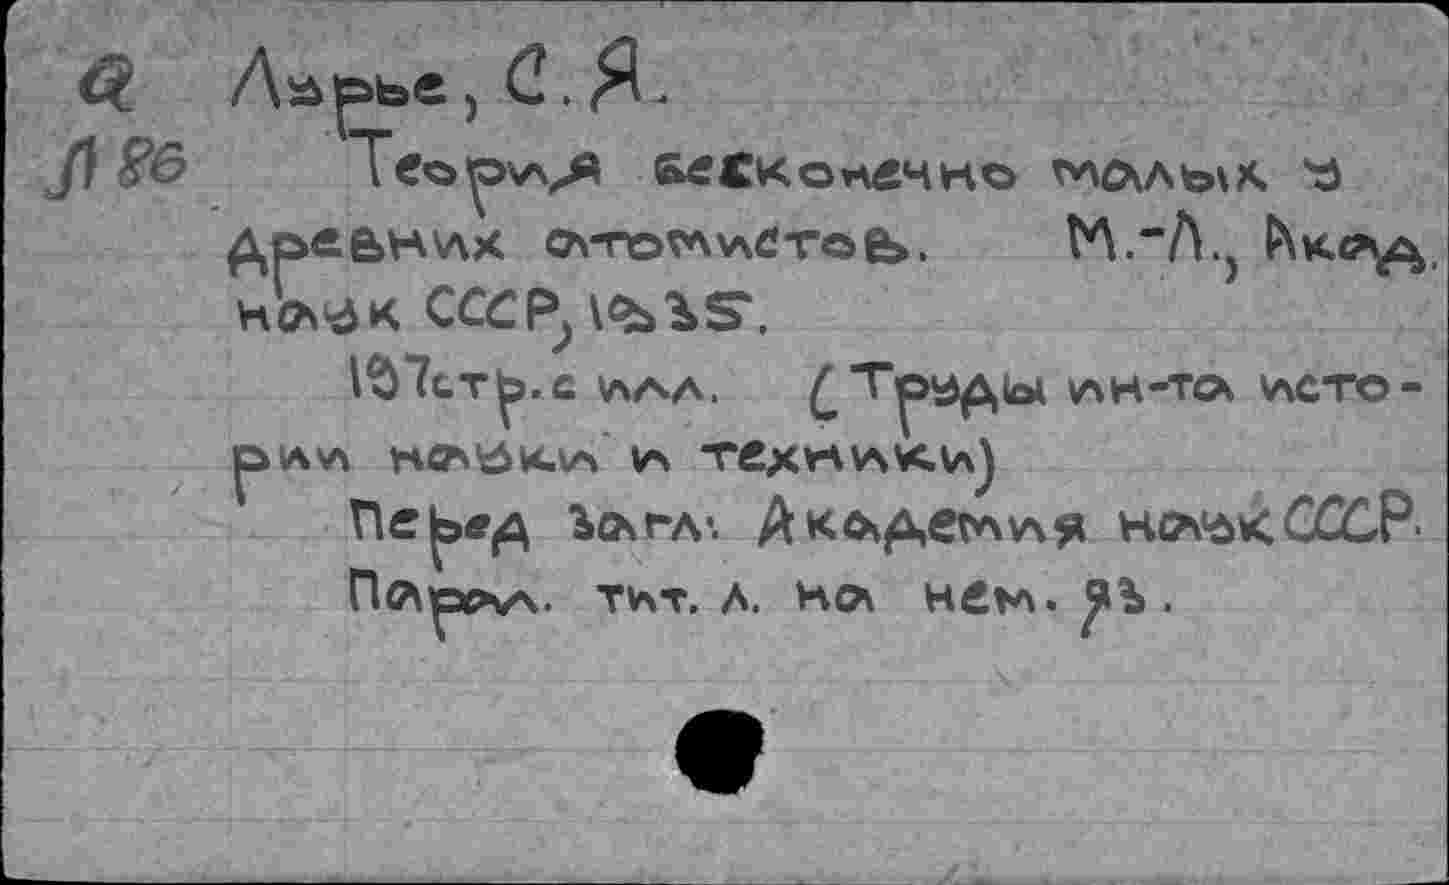 Q Лурье, С. Я.
Л86 Теория бесконечно малых у
древних атомистов. М.-Л., Акад.
наук СССР, 1935.
197стр.с илл. (Труды ин-та исто-
рии науки и техники)
Перед загл: Академия наук СССР.
Парал. тит. л. на нем. яз.